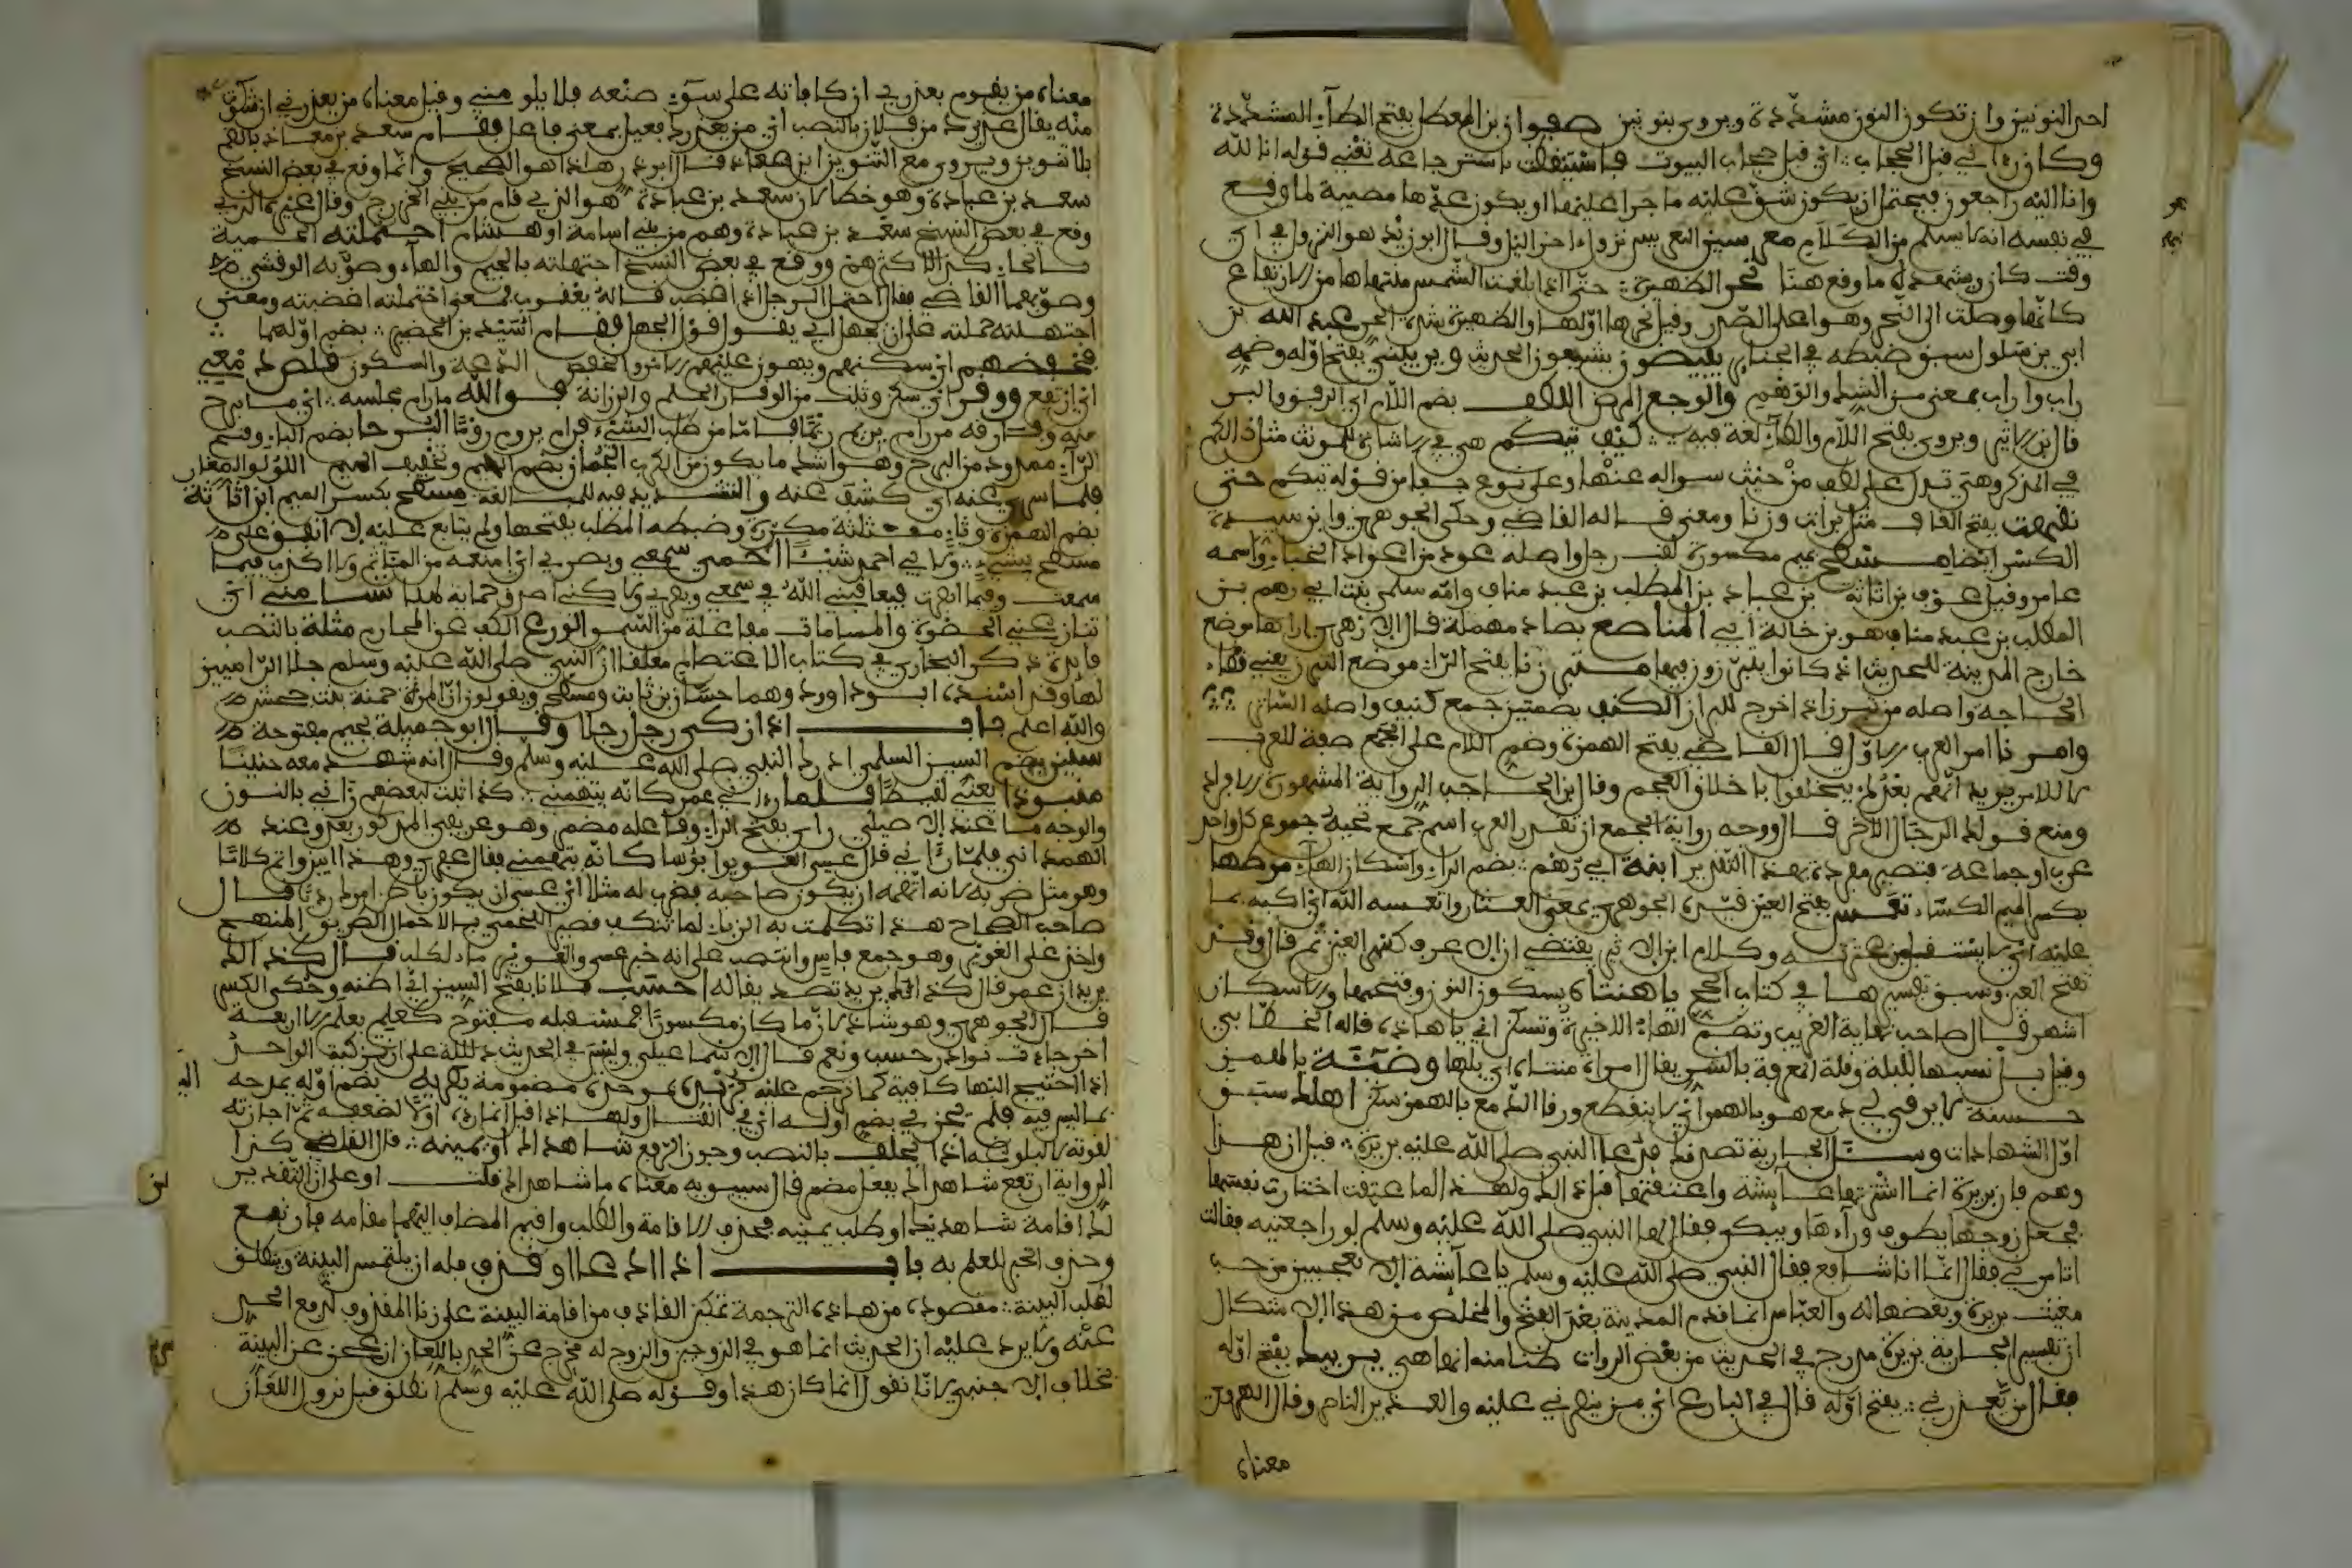 احد النونين وان تكون النون مشددة ويروى بنونين صفوان بن المعطل بفتح الطاء المشددة
وكان رءاني قبل الحجاب اي قبل حجاب البيوت فاستيقظت باسترجاعه تعني قوله انا لله
وانا اليه راجعون فيحتمل ان يكون شق عليه ما جرا عليها او يكون عدها مصيبة لما وقع
في نفسه انه لا يسلم من الكلام معرسين التعريس نزول ءاخر الليل وقال ابو زيد هو النزول في اي
وقت كان ويشهد له ما وقع هنا نحر الظهيرة حتى اذا بلغت الشمس منتهاها من الارتفاع
كانها وصلت الى النحر وهو اعلى الصدر وقيل نحرها اولها والظهيرة شدة الحر عبد الله بن
ابي بن سلول سبق ضبطه في الجنائز يفيضون يشيعون الحديث ويريبني بفتح اوله وضمه
راب واراب بمعنى من الشك والوهم والوجع المرض اللطف بضم اللام اي الرفق والبر
قال ابن الاثير ويروى بفتح اللام والطاء لغة فيه كيف تيكم هي في الاشارة للمونث مثل ذاكم
في المذكر وهي تدل على لطف من حيث سواله عنها وعلى نوع جفا من قوله تيكم حتى
نقهت بفتح القاف مثل برات وزنا ومعنى قاله القاضي وحكى الجوهري وابن سيدة
الكسر ايضا مسطح بميم مكسورة لقب رجل واصله عود من اعواد الخباء واسمه
عامر وقيل عوف بن اثاثة بن عباد بن المطلب بن عبد مناف وامه سلمى بنت ابي رهم بن
المطلب بن عبد مناف هو بن خالة ابي المناصع بصاد مهملة قال الازهري اراها موضع
خارج المدينة للحديث اذ كانوا يتبرزون فيها متبرزنا بفتح الراء موضع التبرز يعني قضاء
الحاجة واصله من تبرز اذا خرج للبراز الكنف بضمتين جمع كنيف واصله الساتر
وامرنا امر العرب الاول قال القاضي بفتح الهمزة وضم اللام على الجمع صفة للعرب
لا للامر يريد انهم بعد لم يتخلقوا باخلاق العجم وقال بن الحاجب الرواية المشهورة الاول
ومنع قولك الرجال الاخر قال ووجه رواية الجمع ان تقدر العرب اسم جمع تحته جموع كل واحد
عرب او جماعة فتصير مفردة بهذا التقدير ابنة ابي رهم بضم الراء واسكان الهاء مرطها
بكسر الميم الكساء تعس بفتح العين قيده الجوهري بمعنى العثار واتعسه الله اي اكبه بما
عليه اي لا استقبل من عثرته وكلام ابن الاثير يقتضي ان الاعرف كسر العين ثم قال وقد
تفتح العين وسبق تفسيرها في كتاب الحج يا هنتاه بسكون النون وفتحها والاسكان
اشهر قال صاحب نهاية الغريب وتضم الهاء الاخيرة وتسكن اي يا هاذه قاله الخطابي
وقيل بل نسبها للبله وقلة المعرفة بالشر يقال امراة هنتاه اي بلها وضيئة بالهمز
حسنة لا يرقي لي دمع هو بالهمز اي لا ينقطع ورقا الدمع بالهمز سكن اهلك سبق
اول الشهادات وسل الجارية تصدقك فدعا النبي صلى الله عليه بريرة قيل ان هذا
وهم فان بريرة انما اشترتها عايشة واعتقتها قبل ذلك ولهذا لما عتقت اختارت نفسها
فجعل زوجها يطوف وراءها ويبكي فقال لها النبي صلى الله عليه وسلم لو راجعتيه فقالت
اتامرني فقال انما انا شافع فقال النبي صلى الله عليه وسلم يا عايشة الا تعجبين من حب
مغيث بريرة وبغضها له والعباس انما قدم المدينة بعد الفتح والمخلص من هذا الاشكال
ان تفسير الجارية ببريرة مدرج في الحديث من بعض الروات ظنا منه انها هي يريبك بفتح اوله
فقال من يعذرني بفتح اوله قال في البارع اي من ينصرني عليه والعذير الناصر وقال الهروي
معناه
معناه من يقوم بعذري ان كافاته على سوء صنعه فلا يلومني وقيل معناه من يعذرني ان شكوت
منه يقال عذيرك من فلان بالنصب اي من يعذرك فعيل بمعنى فاعل فقام سعد بن معاذ بالضم
بلا تنوين ويروى مع التنوين ابن معاذ قال ابو ذر هاذا هو الصحيح وانما وقع في بعض النسخ
سعد بن عبادة وهو خطا لان سعد بن عبادة هو الذي قام من بني الخزرج وقال غيره الذي
وقع في بعض النسخ سعد بن عبادة وهم من ابي اسامة او هشام احتملته الحمية
بالحاء كذا لاكثرهم ووقع في بعض النسخ اجتهلته بالجيم والهاء وصوبه الوقشي
وصوبهما القاضي فقال احتمل الرجل اذا غضب قاله يعقوب فمعنى احتملته اغضبته ومعنى
اجتهلته حملته على ان يجهل اي يقول قول الجهل فقام اسيد بن الحضير بضم اولهما
فخفضهم اي سكنهم ويهون عليهم الامر والخفض الدعة والسكون فلص دمعي
اي ارتفع ووقر اي سكن وثبت من الوقار الحلم والرزانة فوالله ما رام مجلسه اي ما برح
منه وفارقه من رام يريم ريما فاما من طلب الشيء فرام يروم روما البرحا بضم الباء وفتح
الراء ممدود من البرح وهو اشد ما يكون من الكرب الجمان بضم الجيم وتخفيف الميم اللؤلو الصغار
فلما سري عنه اي كشف عنه والتشديد فيه للمبالغة مسطح بكسر الميم ابن اثاثة
بضم الهمزة وثاء مثلثة مكررة وضبطه المطلب بفتحها ولم يتابع عليه لا انفق على
مسطح بشيء اي احمي سمعي وبصري اي امنعه من المئاثم ولا اكذب فيما
سمعت وفيما ابصرت فيعاقبني الله في سمعي وبصري ولاكني اصدق حماية لهما تساميني اي
تنازعني الحظوة والمساماة مفاعلة من السمو الورع الكف عن المحارم مثلة بالنصب
فايدة ذكر البخاري في كتاب الاعتصام معلقا ان النبي صلى الله عليه وسلم جلد الرامين
لها وقد اسنده ابو داوود وهما حسان بن ثابت ومسطح ويقولون ان المرة حمنة بنت جحش
والله اعلم باب اذا زكى رجل رجلا وقال ابو جميلة بجيم مفتوحة
سنين بضم السين السلمي ادرك النبي صلى الله عليه وسلم وقال انه شهد معه حنينا
منبوذا يعني لقيطا فلما رءاني عمر كانه يتهمني كذا ثبت لبعضهم رءاني بالنون
والوجه ما عند الاصيلي راى بفتح الراء وفاعله مضمر وهو عريفي المذكور بعد وعند
الهمداني فلما رءاني قال عسى الغوير ابؤسا كانه يتهمني فقال عريفي وهذا ابين واتم كلاما
وهو مثل ضربه لانه اتهمه ان يكون صاحبه فضرب له مثلا اي عسى ان يكون باطن امرك رديا قال
صاحب الصحاح هذا تكلمت به الزباء لما تنكب قصير اللخمي بالاحمال الطريق المنهج
واخذ على الغوير وهو جمع باس وانتصب على انه خبر عسى والغوير ماء لكلب قال كذلك
يريد ان عمر قال كذلك يريد تصديقا له احسب فلانا بفتح السين اي اظنه وحكي الكسر
قال الجوهري وهو شاذ لان ما كان مكسورا فمستقبله مفتوح كعلم يعلم الا اربعة
احرف جات نوادر حسب ونعم قال الاسماعيلي وليس في الحديث دلالة على ان تزكية الواحد
اذا احتيج اليها كافية كما ترجم عليه يطريه بموحدة مضمومة يطريه بضم اوله يمدحه
بما ليس فيه فلم يجزني بضم اوله اي في القتال ولهاذا قيل انما رده اولا لضعفه ثم اجازته
لقوته لا لبلوغه اذا يحلف بالنصب وجوز الرفع شاهداك او يمينه قال القاضي كذا
الرواية ارتفع شاهداك بفعل مضمر قال سيبويه معناه ما شاهداك قلت او على ان التقدير
لك اقامة شاهديك او طلب يمينه فحذف الاقامة والطلب واقيم المضاف اليهما مقامه فارتفع
وحذف الخبر للعلم به باب اذا ادعا او قذف فله ان يلتمس البينة وينطلق
لطلب البينة مقصوده من هاذه الترجمة تمكين القاذف من اقامة البينة على زنا المقذوف لدفع الحد
عنه ولا يرد عليه ان الحديث انما هو في الزوجين والزوج له مخرج عن الحد باللعان ان عجز عن البينة
بخلاف الاجنبي لانا نقول انما كان هذا وقوله صلى الله عليه وسلم انطلق قبل نزول اللعان